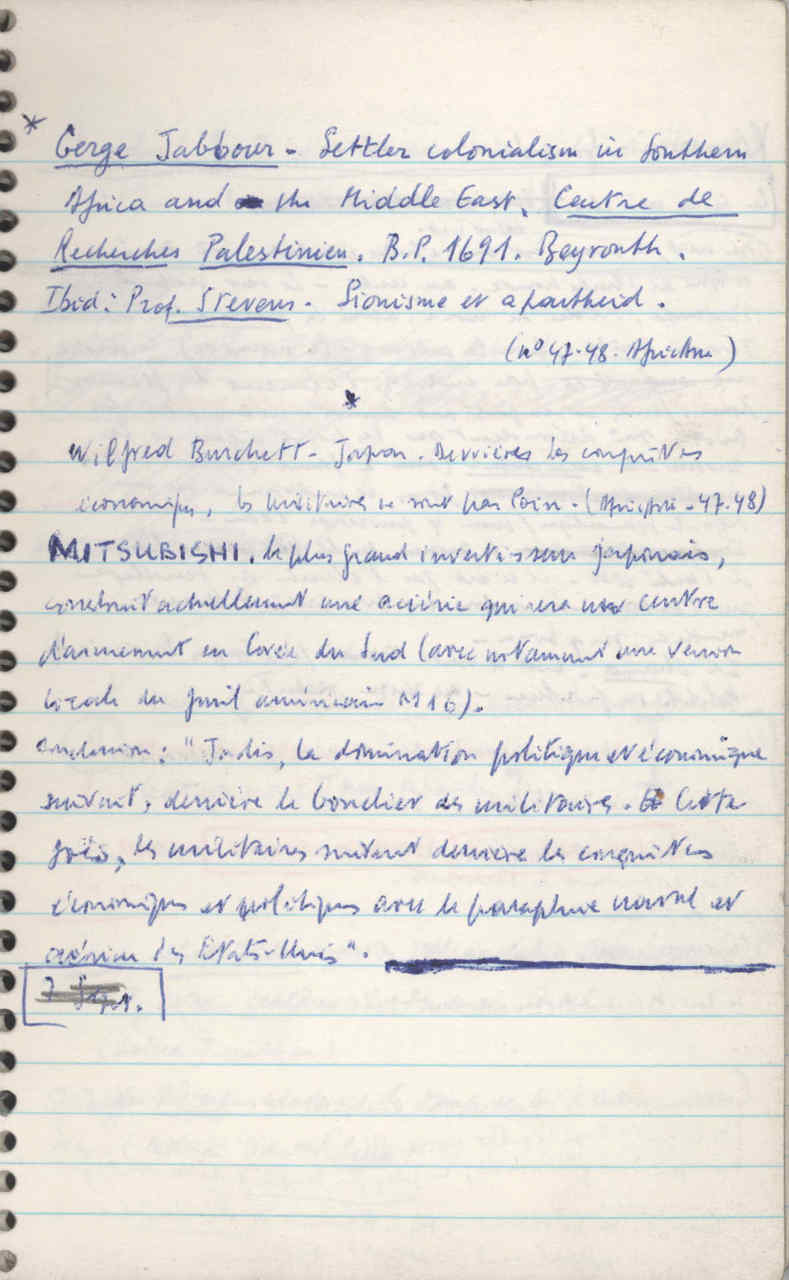 * Gerge Jabbour - Settler colonialism in Southern
Africa and the Middle East. Centre de
Recherches Palestinien. B.P. 1691. Beyrouth.
Ibid: Prof. Stevens. Sionisme et apartheid.
(n° 47-48. AfricAsia)
*
Wilfred Burchett - Japon. Derrières les conquêtes
économiques, les militaires ne sont pas loin - (AfricAsia - 47-48)
MITSUBISHI, le plus grand investisseur japonais,
construit actuellement une aciérie qui sera un centre
d'armement en Corée du Sud (avec notamment une version
locale du fusil américain M16).
Conclusion: "Jadis, la domination politique et économique
suivait, derrière le bouclier des militaires. Cette
fois, les militaires suivent derrière les conquêtes
économiques et politiques avec le parapluie naval et
aérien des Etats-Unis".
7